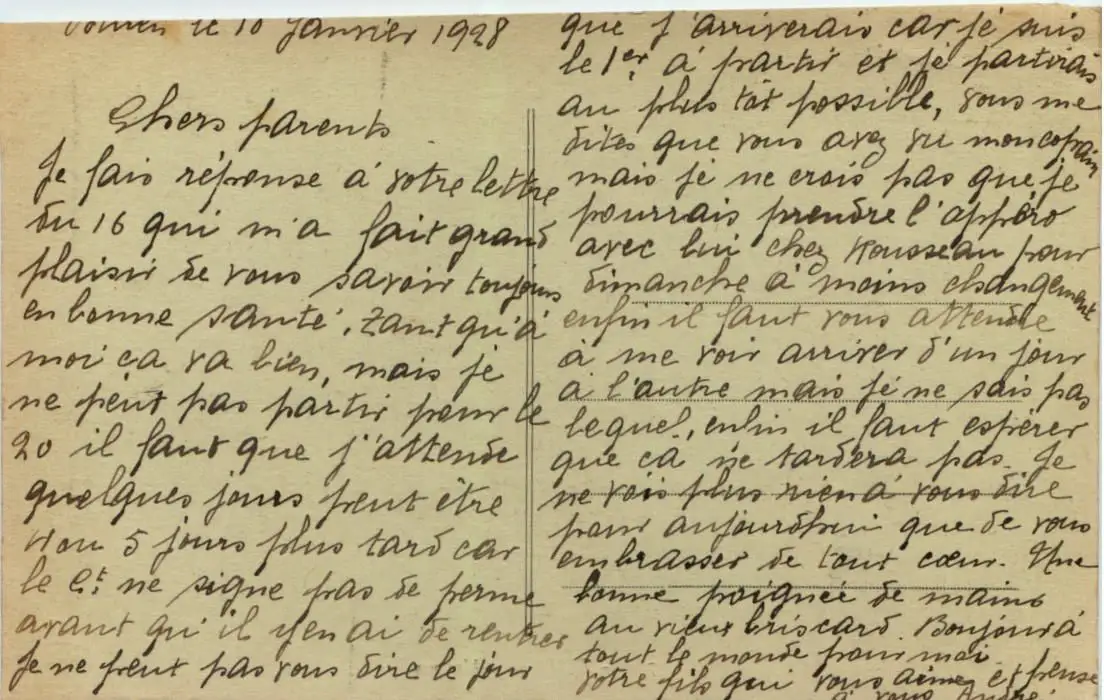 le 10 Janvier 1928
Chers parents
Je fais réponse à votre lettre
du 16 qui m'a fait grand
plaisir de vous savoir toujours
en bonne santé, Tant qu'à
moi ca va bien, mais je
ne peut pas partir pour le
20 il faut que j'attende
quelques jours peut être
4 ou 5 jours plus tard car
le Ct ne signe pas de perme
avant qu'il y en ai de rentrer
Je ne peut pas vous dire le jour
que j'arriverais car je suis
le 1er à partir et je partirais
au plus tôt possible, vous me
dites que vous avez vu mon copain
mais je ne crois pas que je
pourrais prendre l'appéro
avec lui chez Rousseau pour
dimanche à moins changement
enfin il faut vous attendre
à me voir arriver d'un jour
à l'autre mais je ne sais pas
lequel, enfin il faut espérer
que ca ne tardera pas. Je
ne vois plus rien à vous dire
pour aujourdhui que de vous
embrasser de tout cœur. Une
bonne poignée de mains
au vieux briscard. Bonjour à
tout le monde pour moi
votre fils qui vous aimes et pense
à vous André